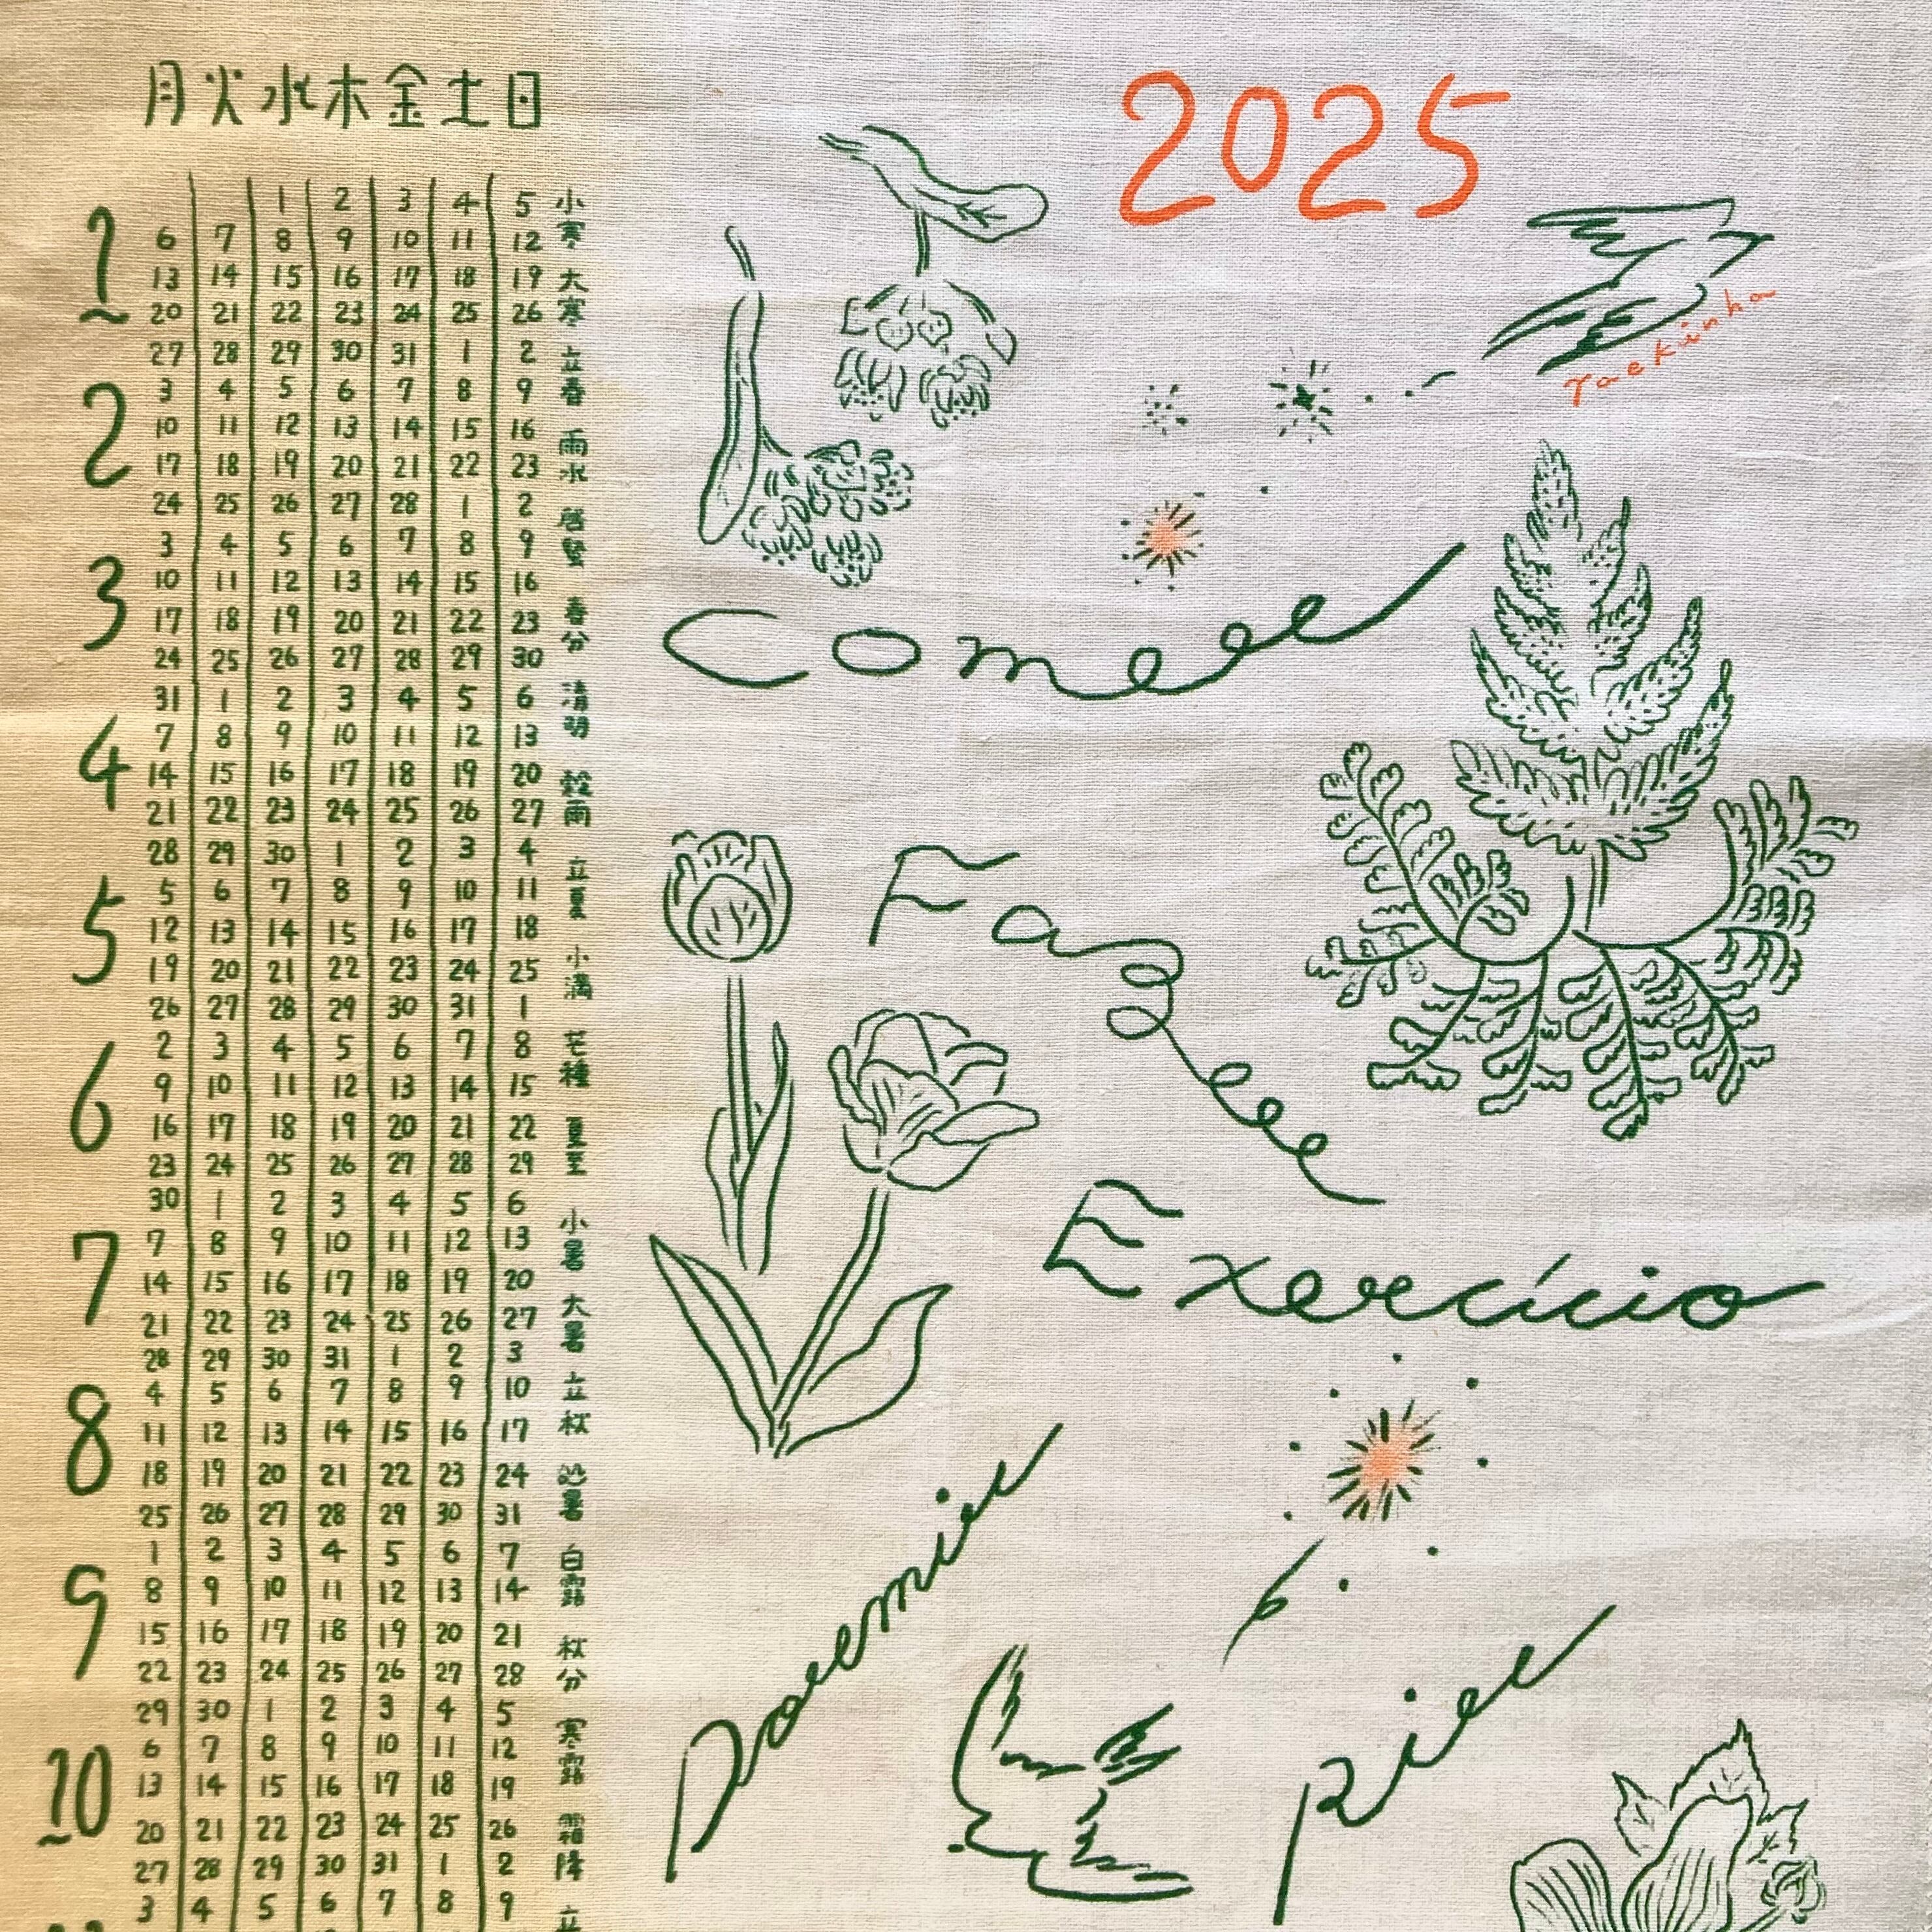 月 火 水 木 金 土 日
2025
Taekinha
1
1 2 3 4 5 小寒
6 7 8 9 10 11 12
13 14 15 16 17 18 19 大寒
20 21 22 23 24 25 26
27 28 29 30 31 1 2 立春
2
3 4 5 6 7 8 9
10 11 12 13 14 15 16 雨水
17 18 19 20 21 22 23
24 25 26 27 28 1 2 啓蟄
3
3 4 5 6 7 8 9
10 11 12 13 14 15 16 春分
17 18 19 20 21 22 23
24 25 26 27 28 29 30
31 1 2 3 4 5 6 清明
4
7 8 9 10 11 12 13
14 15 16 17 18 19 20 穀雨
21 22 23 24 25 26 27
28 29 30 1 2 3 4 立夏
5
5 6 7 8 9 10 11
12 13 14 15 16 17 18 小満
19 20 21 22 23 24 25
26 27 28 29 30 31 1 芒種
6
2 3 4 5 6 7 8
9 10 11 12 13 14 15
16 17 18 19 20 21 22 夏至
23 24 25 26 27 28 29
30 1 2 3 4 5 6 小暑
7
7 8 9 10 11 12 13
14 15 16 17 18 19 20 大暑
21 22 23 24 25 26 27
28 29 30 31 1 2 3 立秋
8
4 5 6 7 8 9 10
11 12 13 14 15 16 17
18 19 20 21 22 23 24 処暑
25 26 27 28 29 30 31
1 2 3 4 5 6 7 白露
9
8 9 10 11 12 13 14
15 16 17 18 19 20 21 秋分
22 23 24 25 26 27 28
29 30 1 2 3 4 5 寒露
10
6 7 8 9 10 11 12
13 14 15 16 17 18 19
20 21 22 23 24 25 26 霜降
27 28 29 30 31 1 2
3 4 5 6 7 8 9 立
Comer
Fazer
Exercício
Dormir
rir